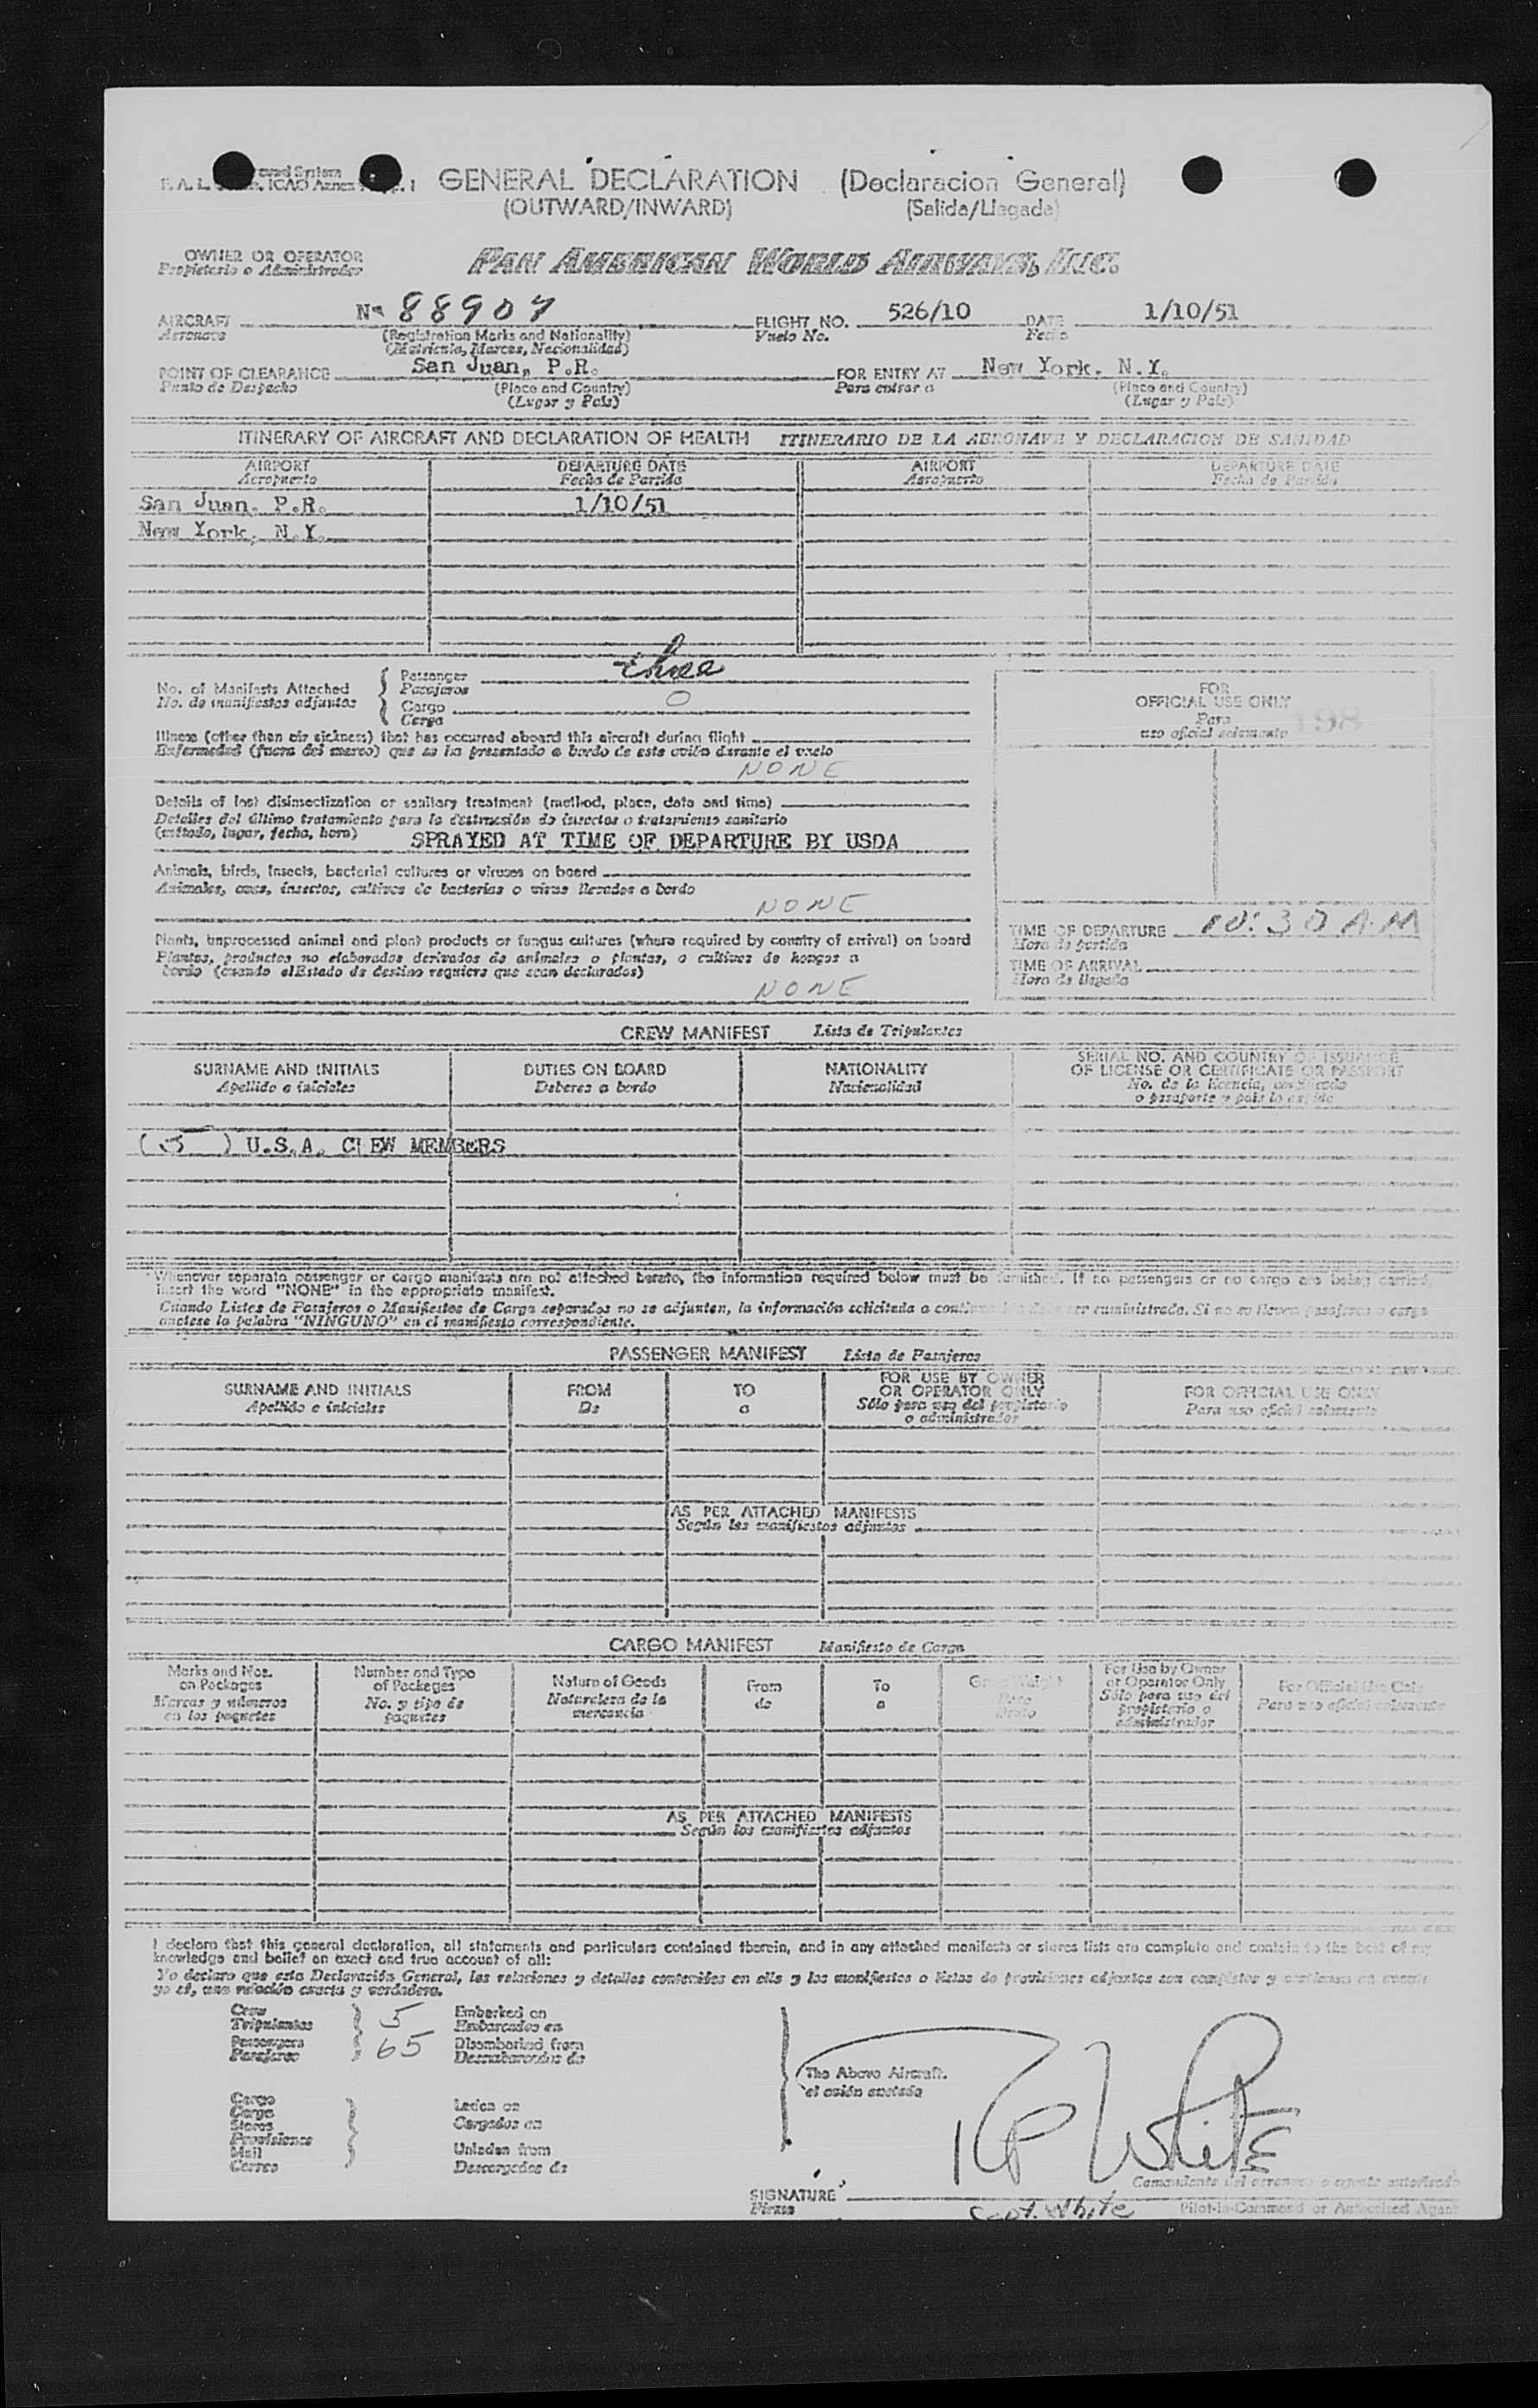 GENERAL DECLARATION (Declaracion General)
(OUTWARD/INWARD) (Salida/Llegada)
OWNER OR OPERATOR
Propietario o Administrador
PAN AMERICAN WORLD AIRWAYS, INC.
AIRCRAFT N- 88907 FLIGHT NO. 526/10 DATE 1/10/51
Aeronave (Registration Marks and Nationality) Vuelo No. Fecha
(Matricula, Marcas, Nacionalidad)
POINT OF CLEARANCE San Juan, P.R. FOR ENTRY AT New York, N.Y.
Punto de Despacho (Place and Country) Para entrar a (Place and Country)
(Lugar y País) (Lugar y País)
ITINERARY OF AIRCRAFT AND DECLARATION OF HEALTH ITINERARIO DE LA AERONAVE Y DECLARACION DE SANIDAD
AIRPORT DEPARTURE DATE AIRPORT DEPARTURE DATE
Aeropuerto Fecha de Partida Aeropuerto Fecha de Partida
San Juan, P.R. 1/10/51
New York, N.Y.
No. of Manifests Attached Passenger three
No. de manifiestos adjuntos Pasajeros
Cargo 0
Carga
FOR
OFFICIAL USE ONLY
Para
uso oficial solamente 198
Illness (other than air sickness) that has occurred aboard this aircraft during flight
Enfermedad (fuera del mareo) que se ha presentado a bordo de este avión durante el vuelo
NONE
Details of last disinsectization or sanitary treatment (method, place, date and time)
Detalles del último tratamiento para la destrucción de insectos o tratamiento sanitario
(método, lugar, fecha, hora) SPRAYED AT TIME OF DEPARTURE BY USDA
Animals, birds, insects, bacterial cultures or viruses on board
Animales, aves, insectos, cultivos de bacterias o virus llevados a bordo
NONE
Plants, unprocessed animal and plant products or fungus cultures (where required by country of arrival) on board
Plantas, productos no elaborados derivados de animales o plantas, o cultivos de hongos a
bordo (cuando el Estado de destino requiera que sean declarados)
NONE
TIME OF DEPARTURE 10:30 A.M
Hora de partida
TIME OF ARRIVAL
Hora de llegada
CREW MANIFEST Lista de Tripulantes
SURNAME AND INITIALS DUTIES ON BOARD NATIONALITY SERIAL NO. AND COUNTRY OF ISSUANCE
OF LICENSE OR CERTIFICATE OR PASSPORT
Apellido e iniciales Deberes a bordo Nacionalidad No. de la licencia, certificado
o pasaporte y país lo expide
( 5 ) U.S.A. CREW MEMBERS
Whenever separate passenger or cargo manifests are not attached hereto, the information required below must be furnished. If no passengers or no cargo are being carried,
insert the word "NONE" in the appropriate manifest.
Cuando Listas de Pasajeros o Manifiestos de Carga separados no se adjunten, la información solicitada a continuación debe ser suministrada. Si no se llevan pasajeros o carga
anótese la palabra "NINGUNO" en el manifiesto correspondiente.
PASSENGER MANIFEST Lista de Pasajeros
SURNAME AND INITIALS FROM TO FOR USE BY OWNER OR OPERATOR ONLY FOR OFFICIAL USE ONLY
Apellido e iniciales De a Sólo para uso del propietario o administrador Para uso oficial solamente
AS PER ATTACHED MANIFESTS
Según los manifiestos adjuntos
CARGO MANIFEST Manifiesto de Carga
Marks and Nos. on Packages Number and Type of Packages Nature of Goods From To Gross Weight For Use by Owner or Operator Only For Official Use Only
Marcas y números en los paquetes No. y tipo de paquetes Naturaleza de la mercancía de a Peso Bruto Sólo para uso del propietario o administrador Para uso oficial solamente
AS PER ATTACHED MANIFESTS
Según los manifiestos adjuntos
I declare that this general declaration, all statements and particulars contained therein, and in any attached manifests or stores lists are complete and contain to the best of my
knowledge and belief an exact and true account of all:
Yo declaro que esta Declaración General, las relaciones y detalles contenidos en ella y los manifiestos o listas de provisiones adjuntos son completos y contienen en cuanto
yo sé, una relación exacta y verdadera.
Crew 5 Embarked on
Tripulantes Embarcados en
Passengers 65 Disembarked from
Pasajeros Desembarcados de
The Above Aircraft.
el avión anotado
Cargo Laden on
Carga Cargados en
Stores
Provisiones
Mail Unladen from
Correo Descargados de
RP White
Comandante del aeronave o agente autorizado
SIGNATURE Capt. White Pilot-in-Command or Authorized Agent
Firma